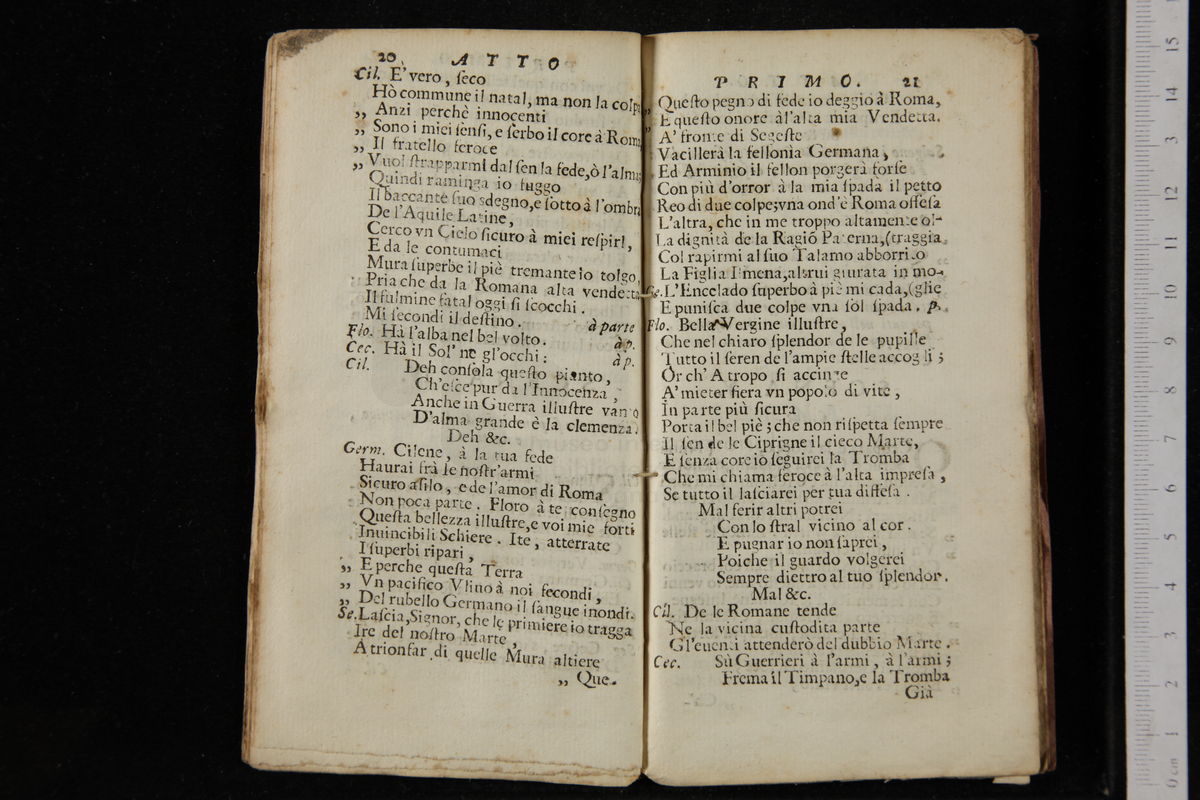 20 ATTO
Cil. E' vero, ſeco
Hò commune il natal, ma non la colpa
„ Anzi perchè innocenti
„ Sono i miei ſenſi, e ſerbo il core à Roma
„ Il fratello feroce
„ Vuol ſtrapparmi dal ſen la fede, ò l'alma;
Quindi raminga io fuggo
Il baccante ſuo sdegno, e ſotto à l'ombra
De l'Aquile Latine,
Cerco vn Cielo ſicuro à miei reſpiri,
E da le contumaci
Mura ſuperbe il piè tremante io tolgo,
Pria che da la Romana alta vendetta
Il fulmine fatal oggi ſi ſcocchi.
Mi ſecondi il deſtino. à parte
Flo. Hà l'alba nel bel volto. à p.
Cec. Hà il Sol' ne gl'occhi: à p.
Cil. Deh conſola queſto pianto,
Ch'eſce pur da l'Innocenza,
Anche in Guerra illuſtre vanto
D'alma grande è la clemenza.
Deh &c.
Germ. Cilene, à la tua fede
Haurai frà le noſtr'armi
Sicuro aſilo, e de l'amor di Roma
Non poca parte. Floro à te conſegno
Queſta bellezza illuſtre, e voi mie forti
Inuincibili Schiere. Ite, atterrate
I ſuperbi ripari,
„ E perche queſta Terra
„ Vn pacifico Vliuo à noi fecondi,
„ Del rubello Germano il ſangue inondi.
Se. Laſcia, Signor, che le primiere io tragga
Ire del noſtro Marte,
A trionfar di quelle Mura altiere
„ Que-
PRIMO. 21
„ Queſto pegno di fede io deggio à Roma,
E queſto onore à l'alta mia Vendetta.
A' fronte di Segeſte
Vacillerà la fellonia Germana,
Ed Arminio il fellon porgerà forſe
Con più d'orror à la mia ſpada il petto
Reo di due colpe; vna ond'è Roma offeſa
L'altra, che in me troppo altamente ol-
La dignità de la Ragiō Paterna, (traggia
Col rapirmi al ſuo Talamo abborrito
La Figlia Iſmena, altrui giurata in mo-
Se. L'Encelado ſuperbo à piè mi cada, (glie
E puniſca due colpe vna ſol ſpada. p.
Flo. Bella Vergine illuſtre,
Che nel chiaro ſplendor de le pupille
Tutto il ſeren de l'ampie ſtelle accogli;
Or ch' Atropo ſi accinge
A' mieter fiera vn popolo di vite,
In parte più ſicura
Porta il bel piè; che non riſpetta ſempre
Il ſen de le Ciprigne il cieco Marte,
E ſenza core io ſeguirei la Tromba
Che mi chiama feroce à l'alta impreſa,
Se tutto il laſciarei per tua diffeſa.
Mal ferir altri potrei
Con lo ſtral vicino al cor.
E pugnar io non ſaprei,
Poiche il guardo volgerei
Sempre diettro al tuo ſplendor.
Mal &c.
Cil. De le Romane tende
Ne la vicina cuſtodita parte
Gl'euenti attenderò del dubbio Marte.
Cec. Sù Guerrieri à l'armi, à l'armi;
Frema il Timpano, e la Tromba
Già